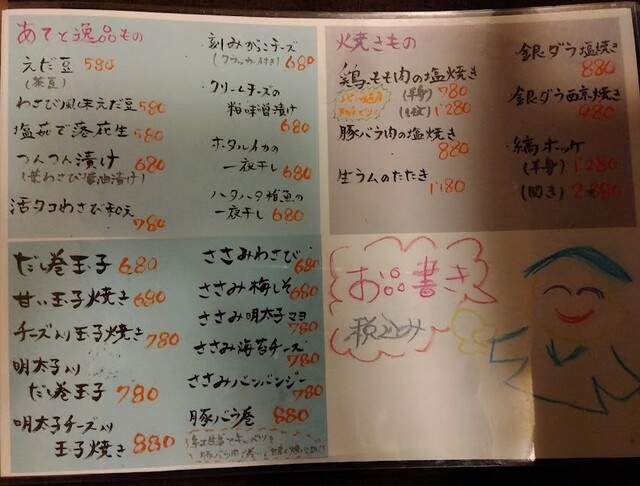 あてと逸品もの
えだ豆 580
(茶豆)
わさび風味えだ豆 580
塩茹で落花生 580
つんつん漬け 680
(葉わさび醤油漬け)
活タコわさび和え 780
刻みからこチーズ
(クラッカー付き) 680
クリームチーズの
粕味噌漬け 680
ホタルイカの
一夜干し 680
ハタハタ稚魚の
一夜干し 680
焼きもの
鶏もも肉の塩焼き
(半身) 780
(1枚) 1280
豚バラ肉の塩焼き
880
生ラムのたたき
1180
銀ダラ塩焼き
880
銀ダラ西京焼き
980
縞ホッケ
(半身) 1280
(開き) 2380
だし巻玉子 680
甘い玉子焼き 680
チーズ入り玉子焼き 780
明太子入り
だし巻玉子 780
明太子チーズ入り
玉子焼き 880
ささみわさび 680
ささみ梅しそ 680
ささみ明太子マヨ
780
ささみ海苔チーズ
780
ささみバンバンジー
780
豚バラ巻 880
お品書き
税込み